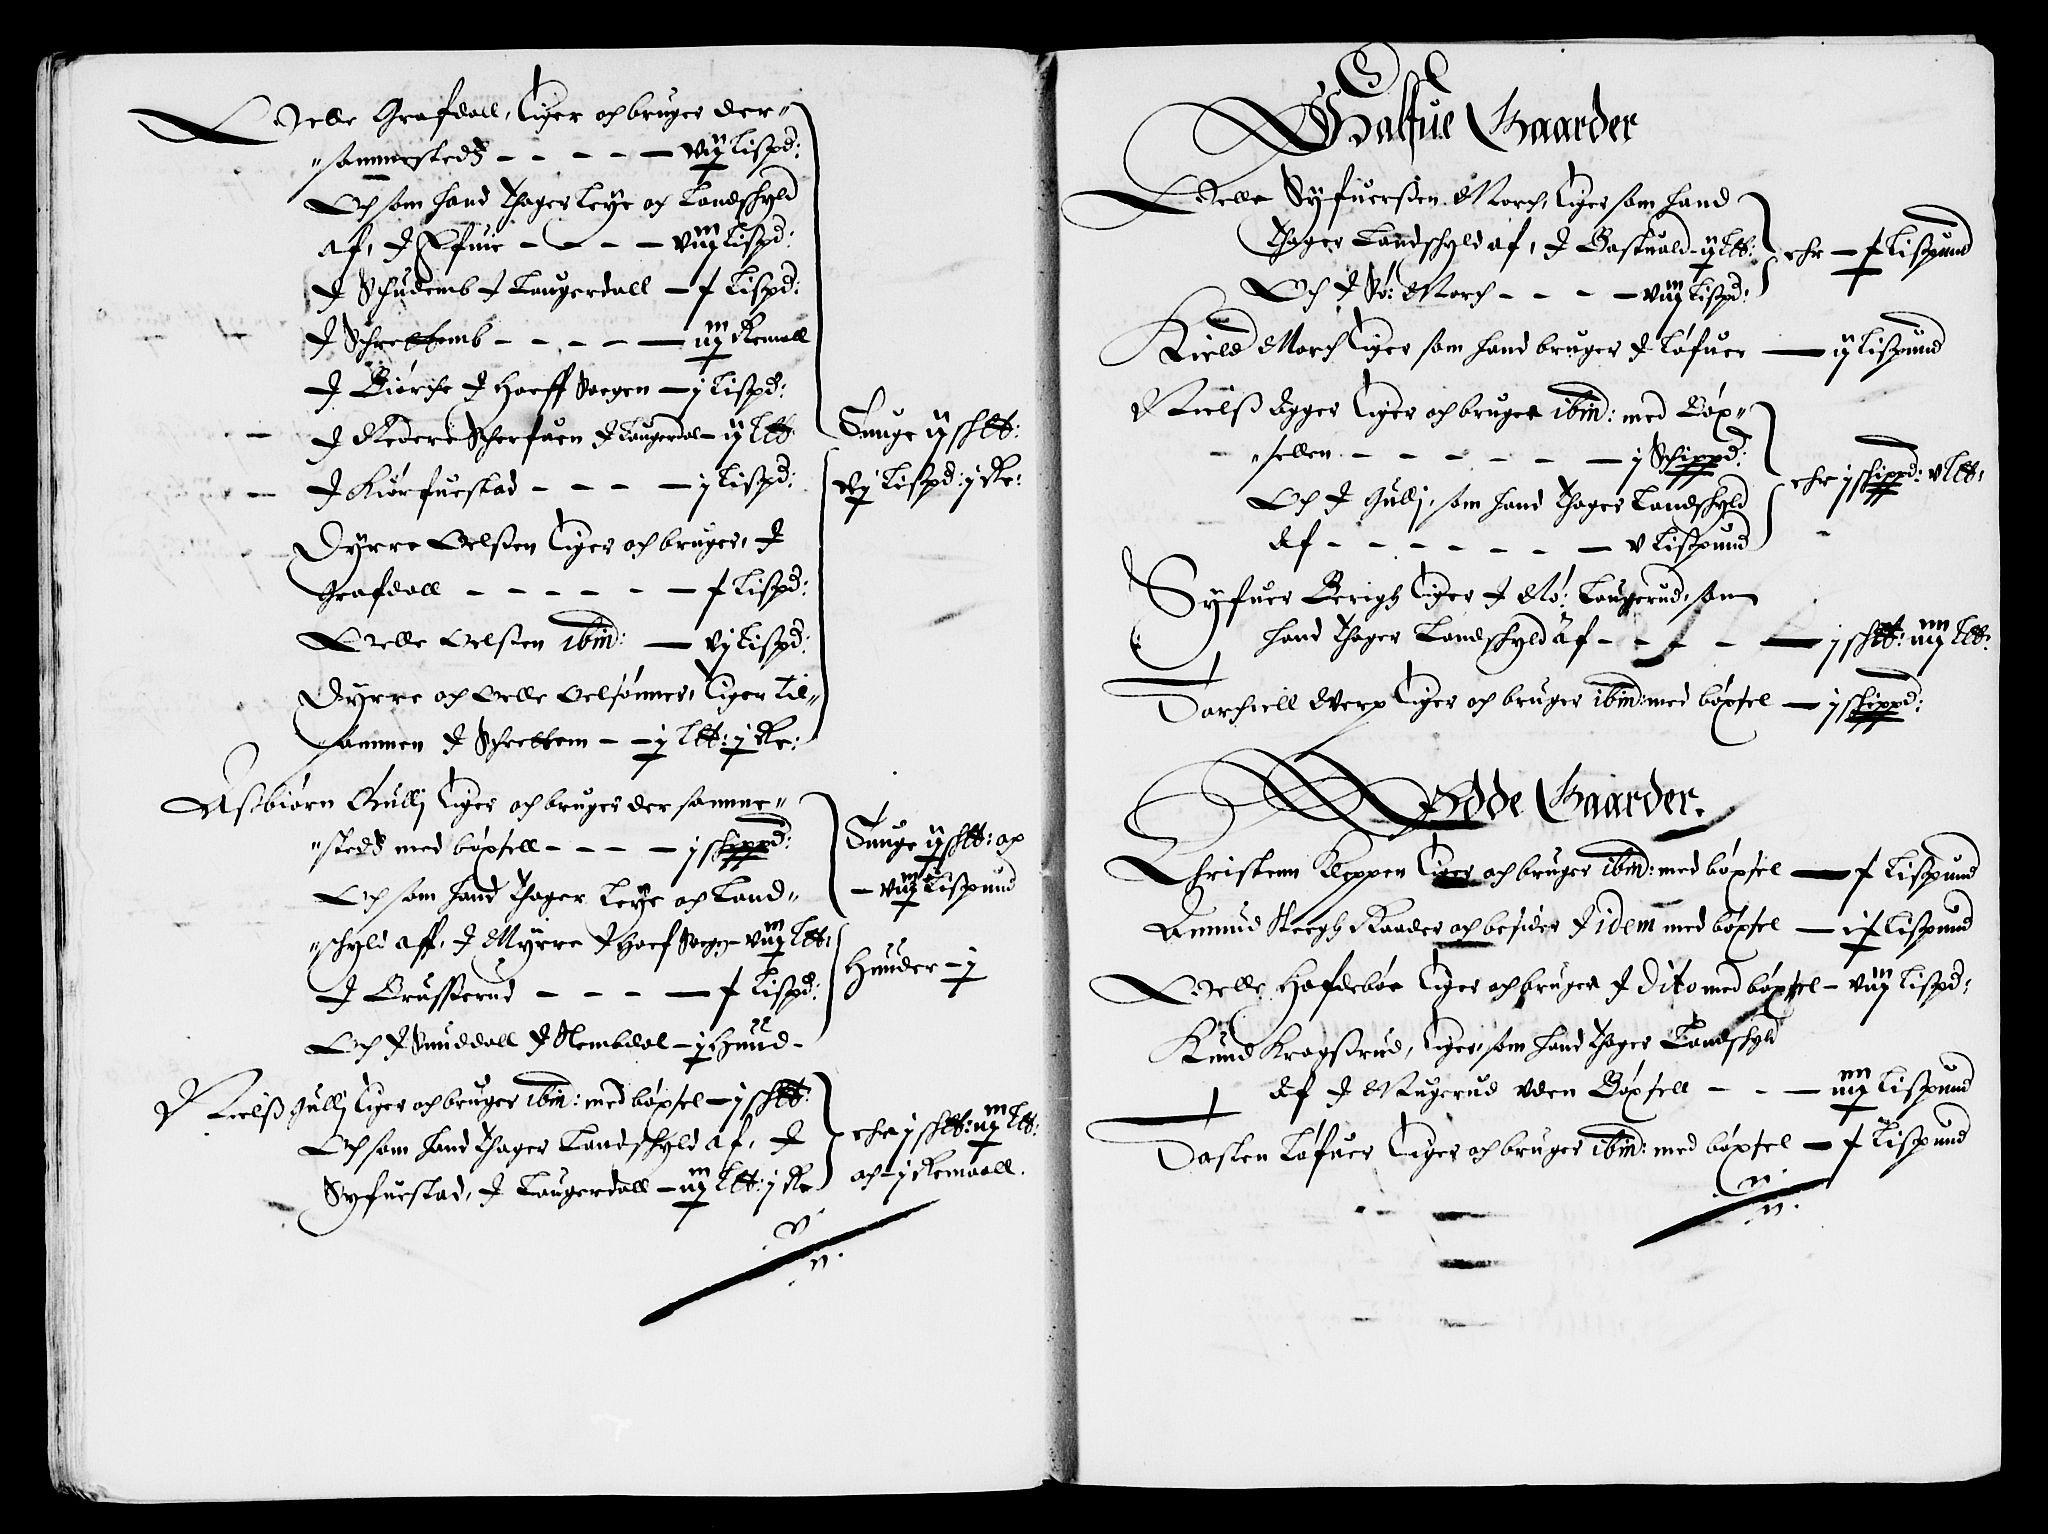 Oelle Grafdall, Eiger och bruger der"
"sammesteds - - - - - viij Lispd:
Och som hand Thager leye och Landschyld
af, J Efuie - - - - viij Lispd:
J Schudemb J Laugerdall - x Lispd:
J Schrettemb - - - - iij Remaell
J Biørche J Hoeff Sogen - j Lispd:
J Nedere Scherfuen J Laugerdal - ij Ltt:
J Kiørfuestad - - - - j Lispd:
Dyrre Oelssen Eiger och bruger, J
Grafdall - - - - - - x Lispd:
Oelle Oelssen ibid: - vj Lispd:
Dyrre och Oelle Oelsønner, Eiger til"
sammen J Schrettem - - j Ltt: j Re:
Tuuge ij schtt:
vj Lispd: j Re:
Asbiørn Gullj Eiger och bruger der samme"
"steds med bøxsell - - - - j schippd:
Och som hand Thager leye och Land"
"schyld aff, J Myrre J Hoef Sogen viij Ltt:
J Brussterud - - - - x Lispd:
Och J Smuddall J Flembdal - j Huud -
Tuuge ij schtt: och
- viij Lispund
Huuder - j
Nielss Gullj Eiger och bruger ibid: med bøxsel - j schtt:
Och som hand Thager Landschyld af, J
Syfuestad, J Laugerdall - iij Ltt: j Re
ehr j schtt: iij Ltt:
och - j Remaell.
Halfue Gaarder
Oelle Syfuerssen Morch, Eiger som hand
Thager Landschyld af, J Gastuald - ij Ltt:
Och J Sø: Morch - - - - viij Lispd:
ehr - x Lispund
Kield Morch Eiger som hand bruger J Løfuer - ij Lispund
Nielss Egger Eiger och bruger ibid: med Bøx"
"sellen - - - - - - - j Schippd:
Och J Gullj, som hand Thager Landschyld
Af - - - - - - - v Lispund
ehr j schippd: v Ltt:
Syfuer Berigh Eiger J Nø: Laugerud, som
hand Thager Landschyld af - - - - - j schtt: iiij Ltt:
Torchiell Werp Eiger och bruger ibid: med bøxsel - j schippd:
Ødde Gaarder.
Christenn Kleppen Eiger och bruger ibid: med bøxsel - x Lispund
Amund Steegh Raader och besider J idem med bøxsel - ix Lispund
Oelle Hofdebøe Eiger och bruger J dito med bøxsel - viij Lispd:
Knud Kragssrud, Eiger, som hand Thager Landschyld
Af J Mugerud uden Bøxsell - - - iiij Lispund
Tosten Løfuer Eiger och bruger ibid: med bøxsel - x Lispund